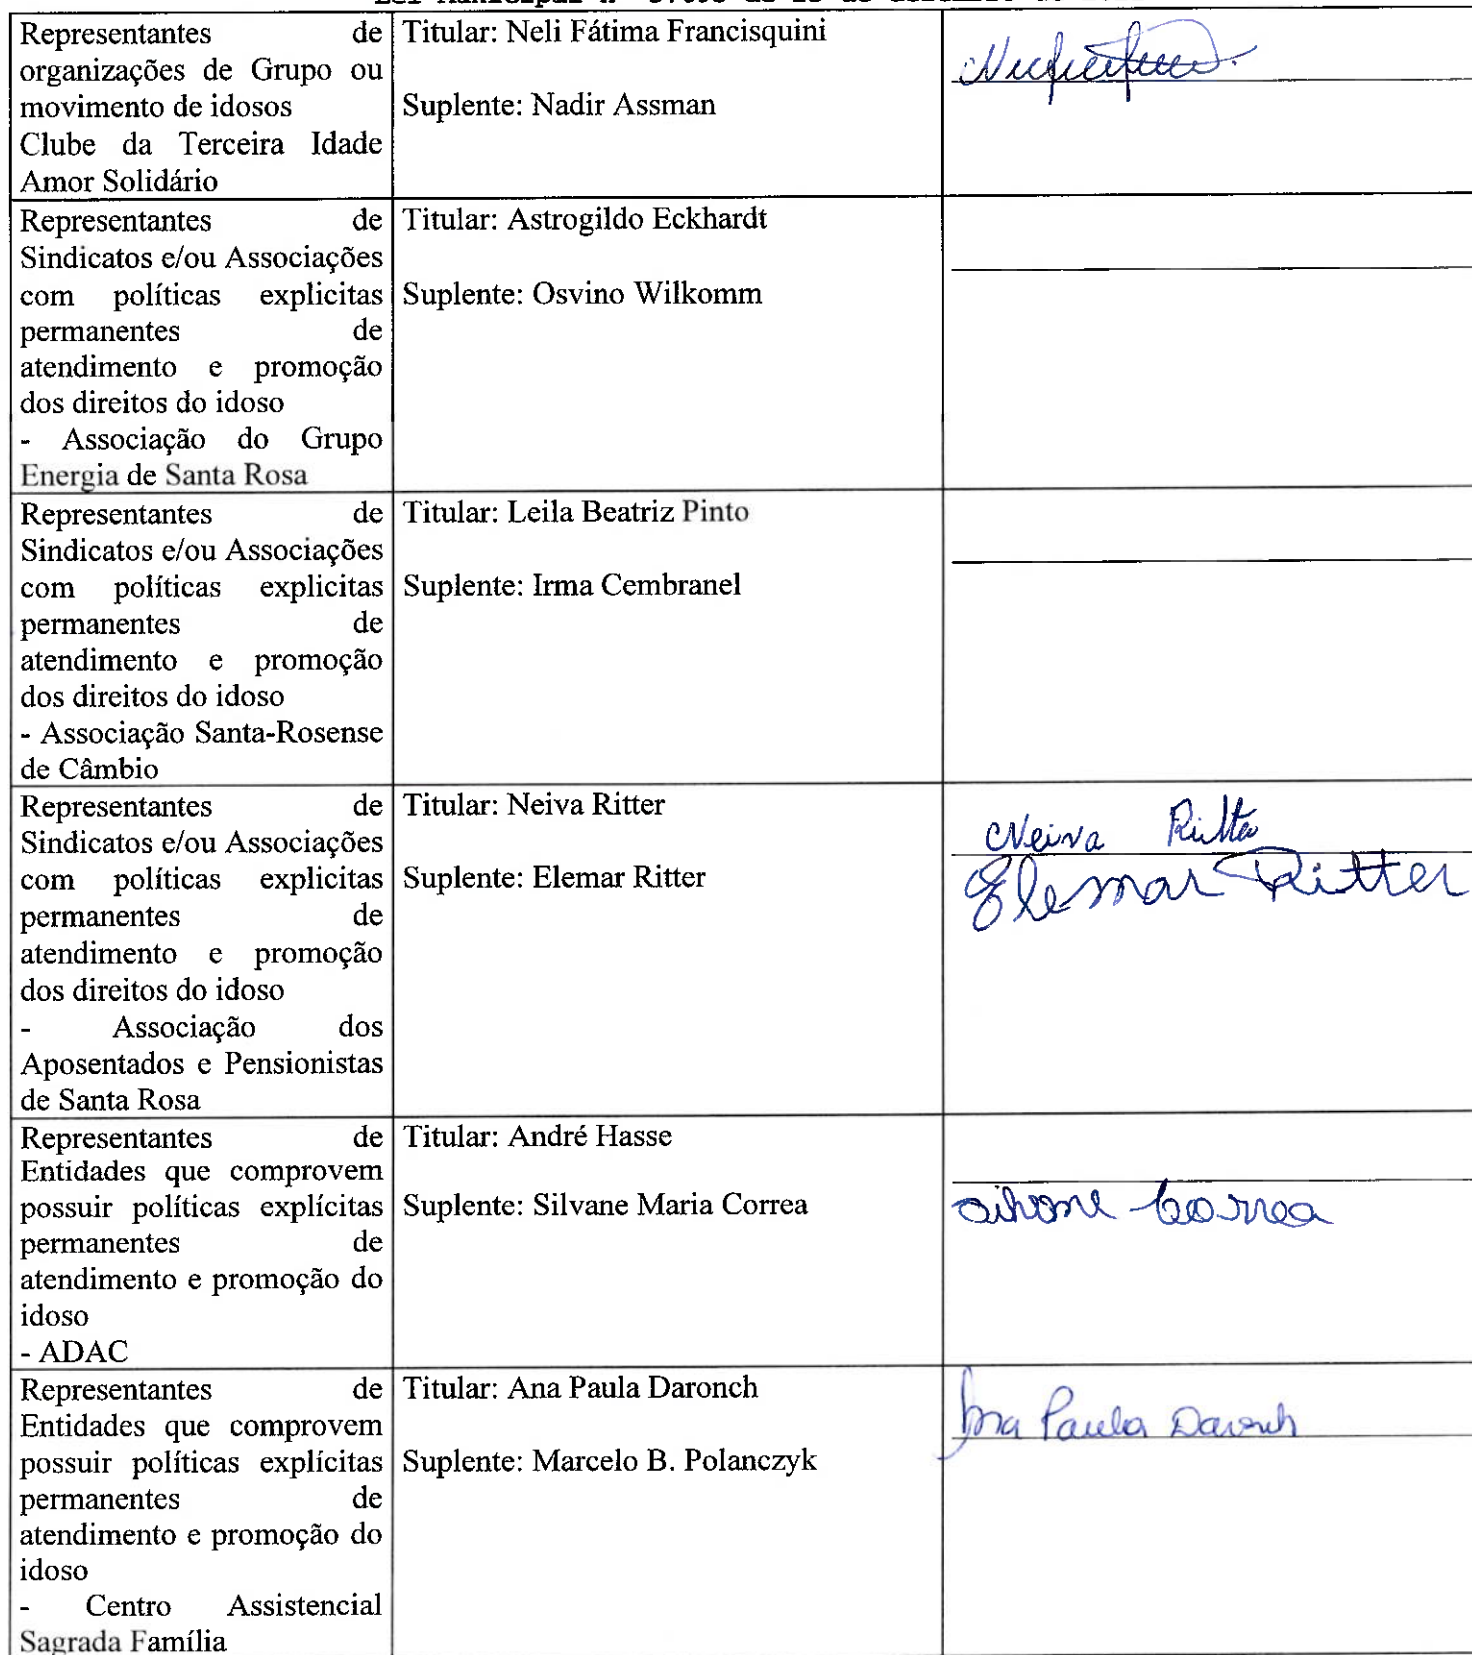 Representantes de
organizações de Grupo ou
movimento de idosos
Clube da Terceira Idade
Amor Solidário
Titular: Neli Fátima Francisquini
Suplente: Nadir Assman
Representantes de
Sindicatos e/ou Associações
com políticas explicitas
permanentes de
atendimento e promoção
dos direitos do idoso
- Associação do Grupo
Energia de Santa Rosa
Titular: Astrogildo Eckhardt
Suplente: Osvino Wilkomm
Representantes de
Sindicatos e/ou Associações
com políticas explicitas
permanentes de
atendimento e promoção
dos direitos do idoso
- Associação Santa-Rosense
de Câmbio
Titular: Leila Beatriz Pinto
Suplente: Irma Cembranel
Representantes de
Sindicatos e/ou Associações
com políticas explicitas
permanentes de
atendimento e promoção
dos direitos do idoso
- Associação dos
Aposentados e Pensionistas
de Santa Rosa
Titular: Neiva Ritter
Suplente: Elemar Ritter
Neiva Ritter
Elemar Ritter
Representantes de
Entidades que comprovem
possuir políticas explícitas
permanentes de
atendimento e promoção do
idoso
- ADAC
Titular: André Hasse
Suplente: Silvane Maria Correa
Silvane Correa
Representantes de
Entidades que comprovem
possuir políticas explícitas
permanentes de
atendimento e promoção do
idoso
- Centro Assistencial
Sagrada Família
Titular: Ana Paula Daronch
Suplente: Marcelo B. Polanczyk
Ana Paula Daronch